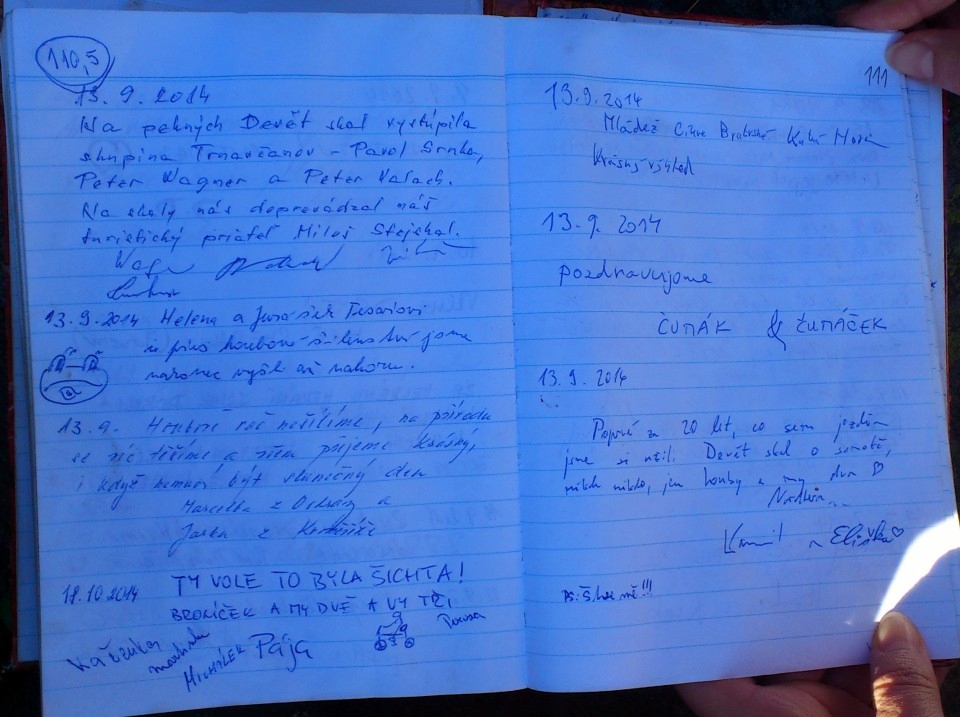 110,5
13. 9. 2014
Na pekných Devět skal vystúpila
skupina Trnavčanov - Pavol Srnka,
Peter Wagner a Peter Valach.
Na skaly nás doprevádzal náš
turistický priateľ Miloš Stejskal.
13.9.2014 Helena a
jsme
nakonec vyšli až nahoru.
13. 9. Houbaře neřešíme, na přírodu
se těšíme a všem přejeme krásný,
i když nemusí být slunečný den
Marcelka z a
Jarka z
18.10.2014 TY VOLE TO BYLA ŠICHTA!
BRONÍČEK A MY DVĚ A VY TŘI
Kačenka
MICHÁLEK Pája
111
13.9.2014
Mládež Církve Bratrské Kutná Hora
Krásný výhled
13.9. 2014
pozdravujeme
ČUMÁK & ČUMÁČEK
13. 9. 2014
Poprvé za 20 let, co sem jezdím
jsme si užili Devět skal o samotě,
nikde nikdo, jen houby a my dva ♡
Kamil a Eliška ♡
PS: